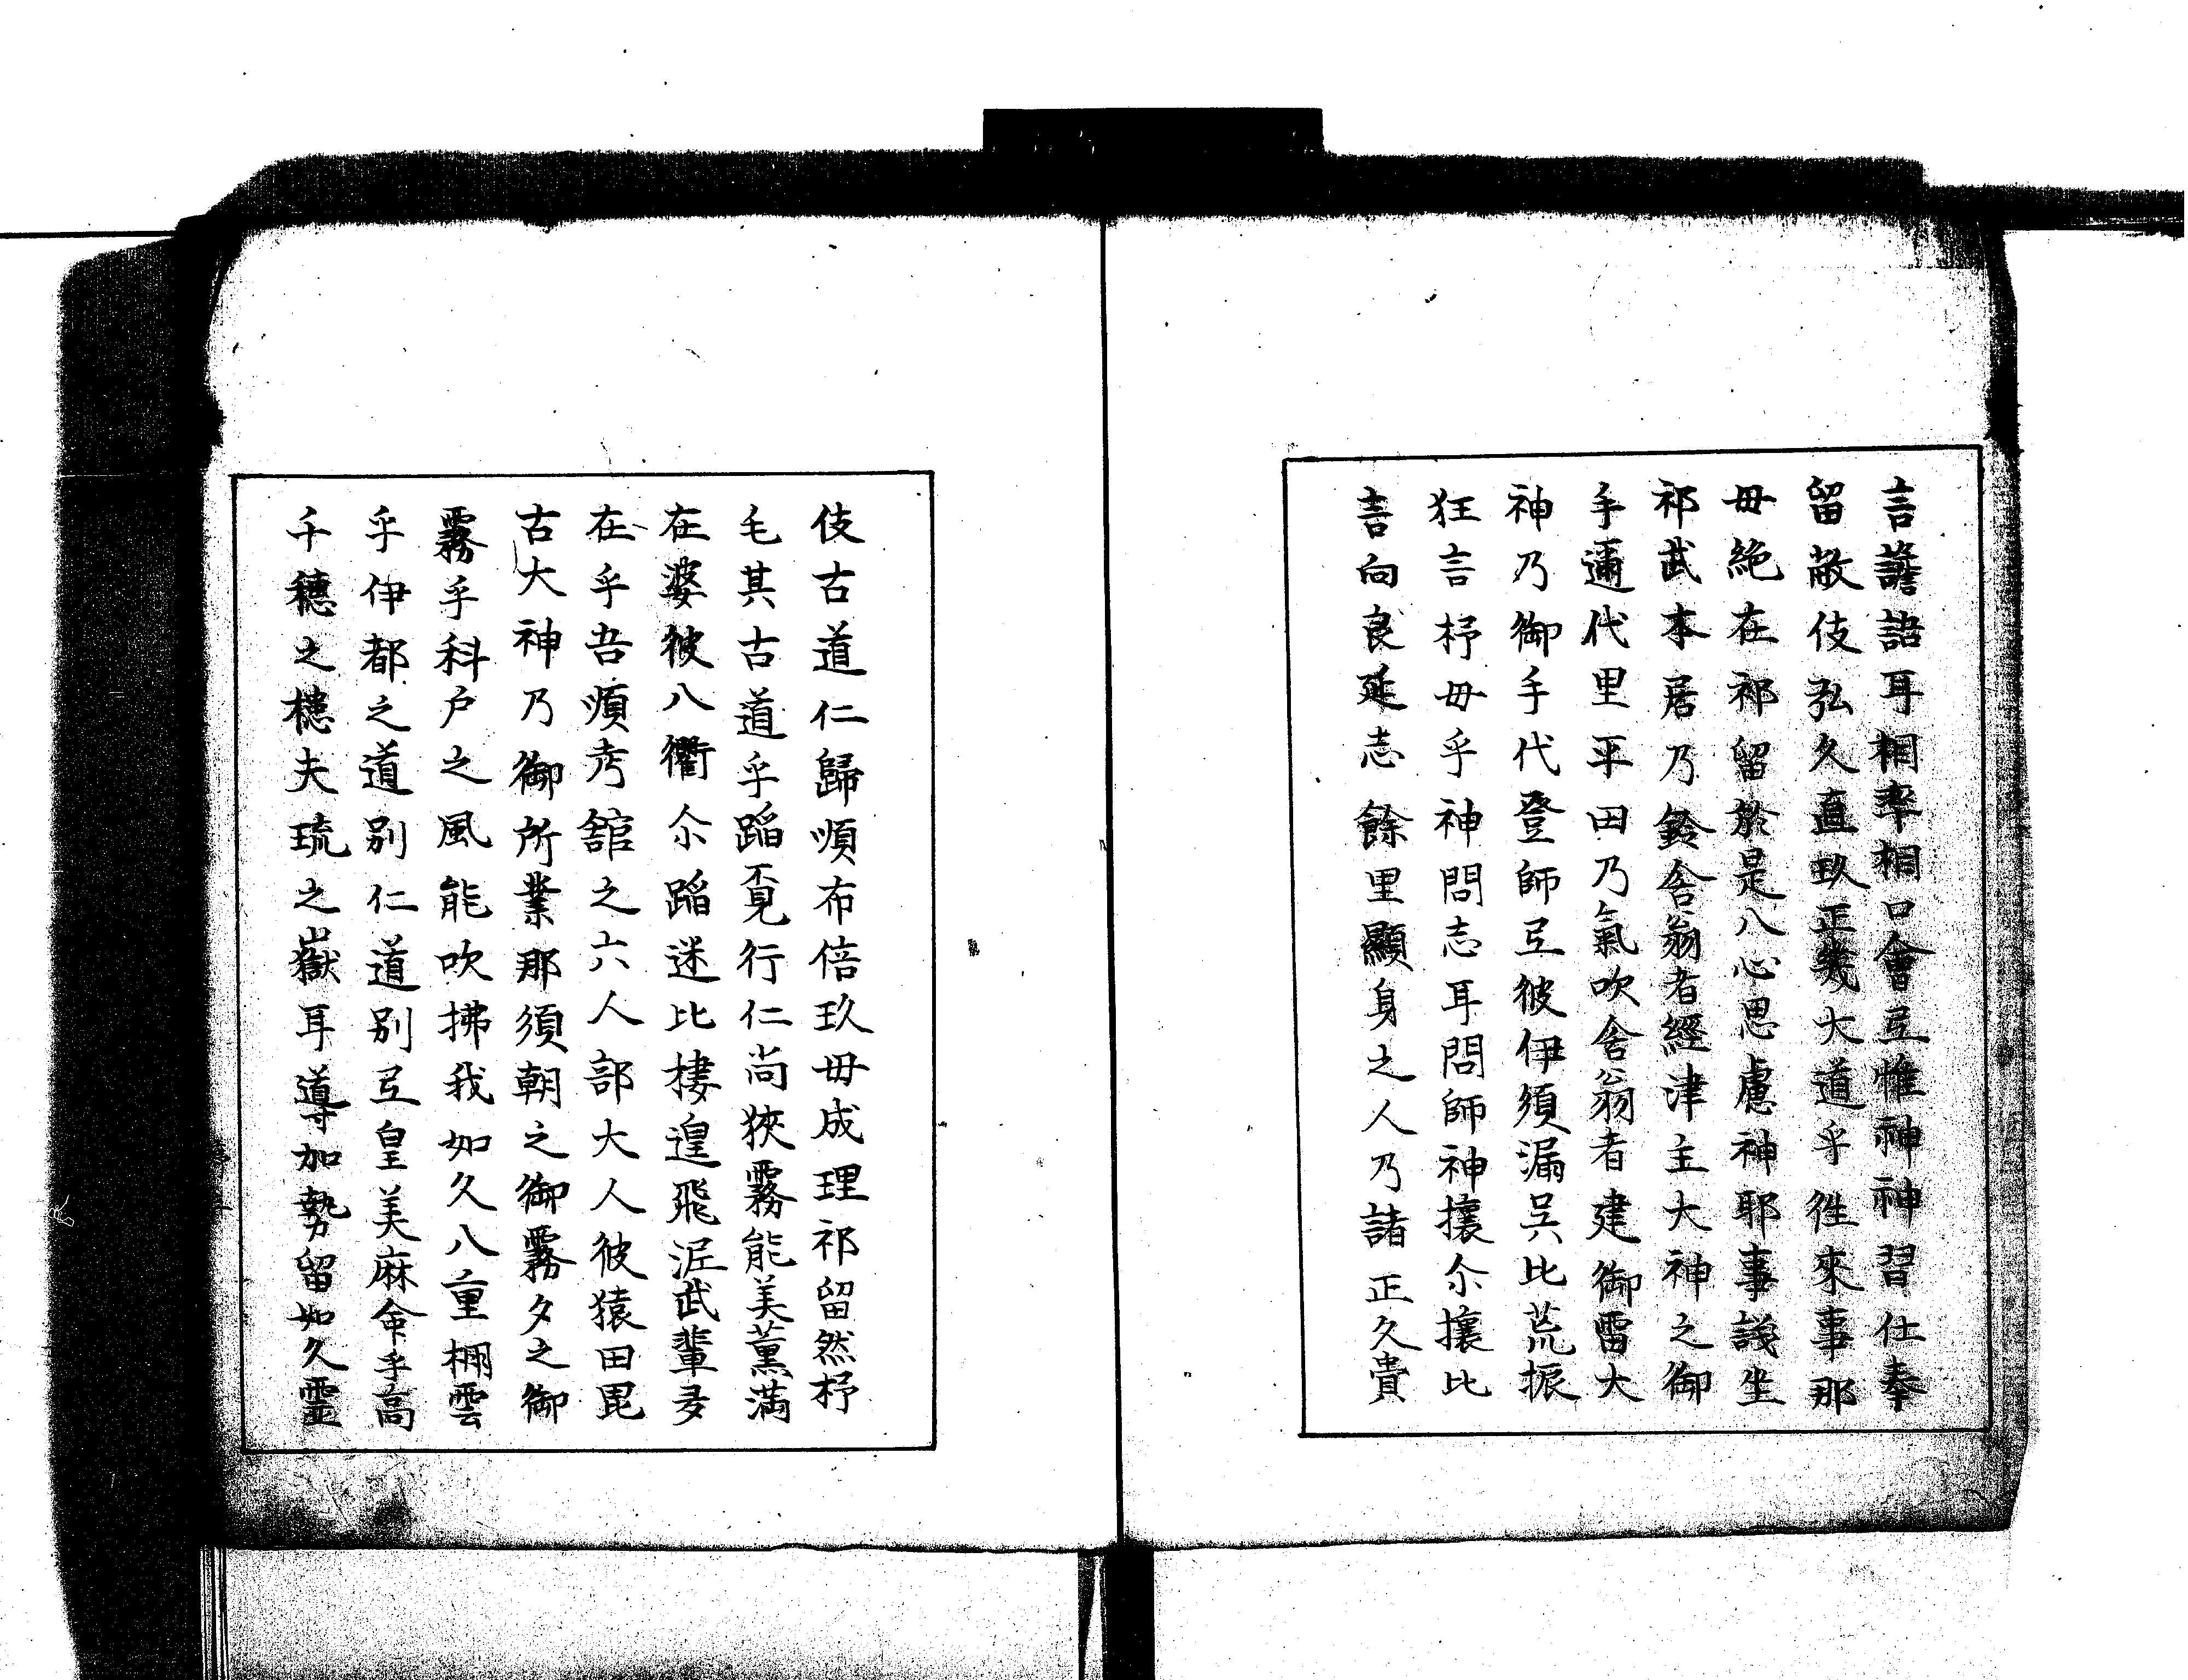 言譫語耳相率相口會弖惟神神習仕奉
留敝伎弘久直玖正幾大道乎徃來事那
毋絶在祁留於是八心思慮神耶事議坐
祁武本居乃鈴舎翁者經津主大神之御
手邇代里平田乃氣吹舎翁者建御雷大
神乃御手代登師弖彼伊須漏呉比荒振
狂言杼毋乎神問志耳問師神攘尒攘比
言向良延志餘里顯身之人乃諸正久貴
伎古道仁歸順布倍玖毋成理祁留然杼
毛其古道乎蹈覔行仁尚狹霧能美薫満
在婆彼八衢尒蹈迷比棲遑飛涊武輩多
在乎吾順考舘之六人部大人彼猿田毘
古大神乃御所業那須朝之御霧夕之御
霧乎科戸之風能吹拂我如久八重棚雲
乎伊都之道別仁道別弖皇美麻命乎高
千穗之槵夫琉之嶽耳導加勢留如久靈